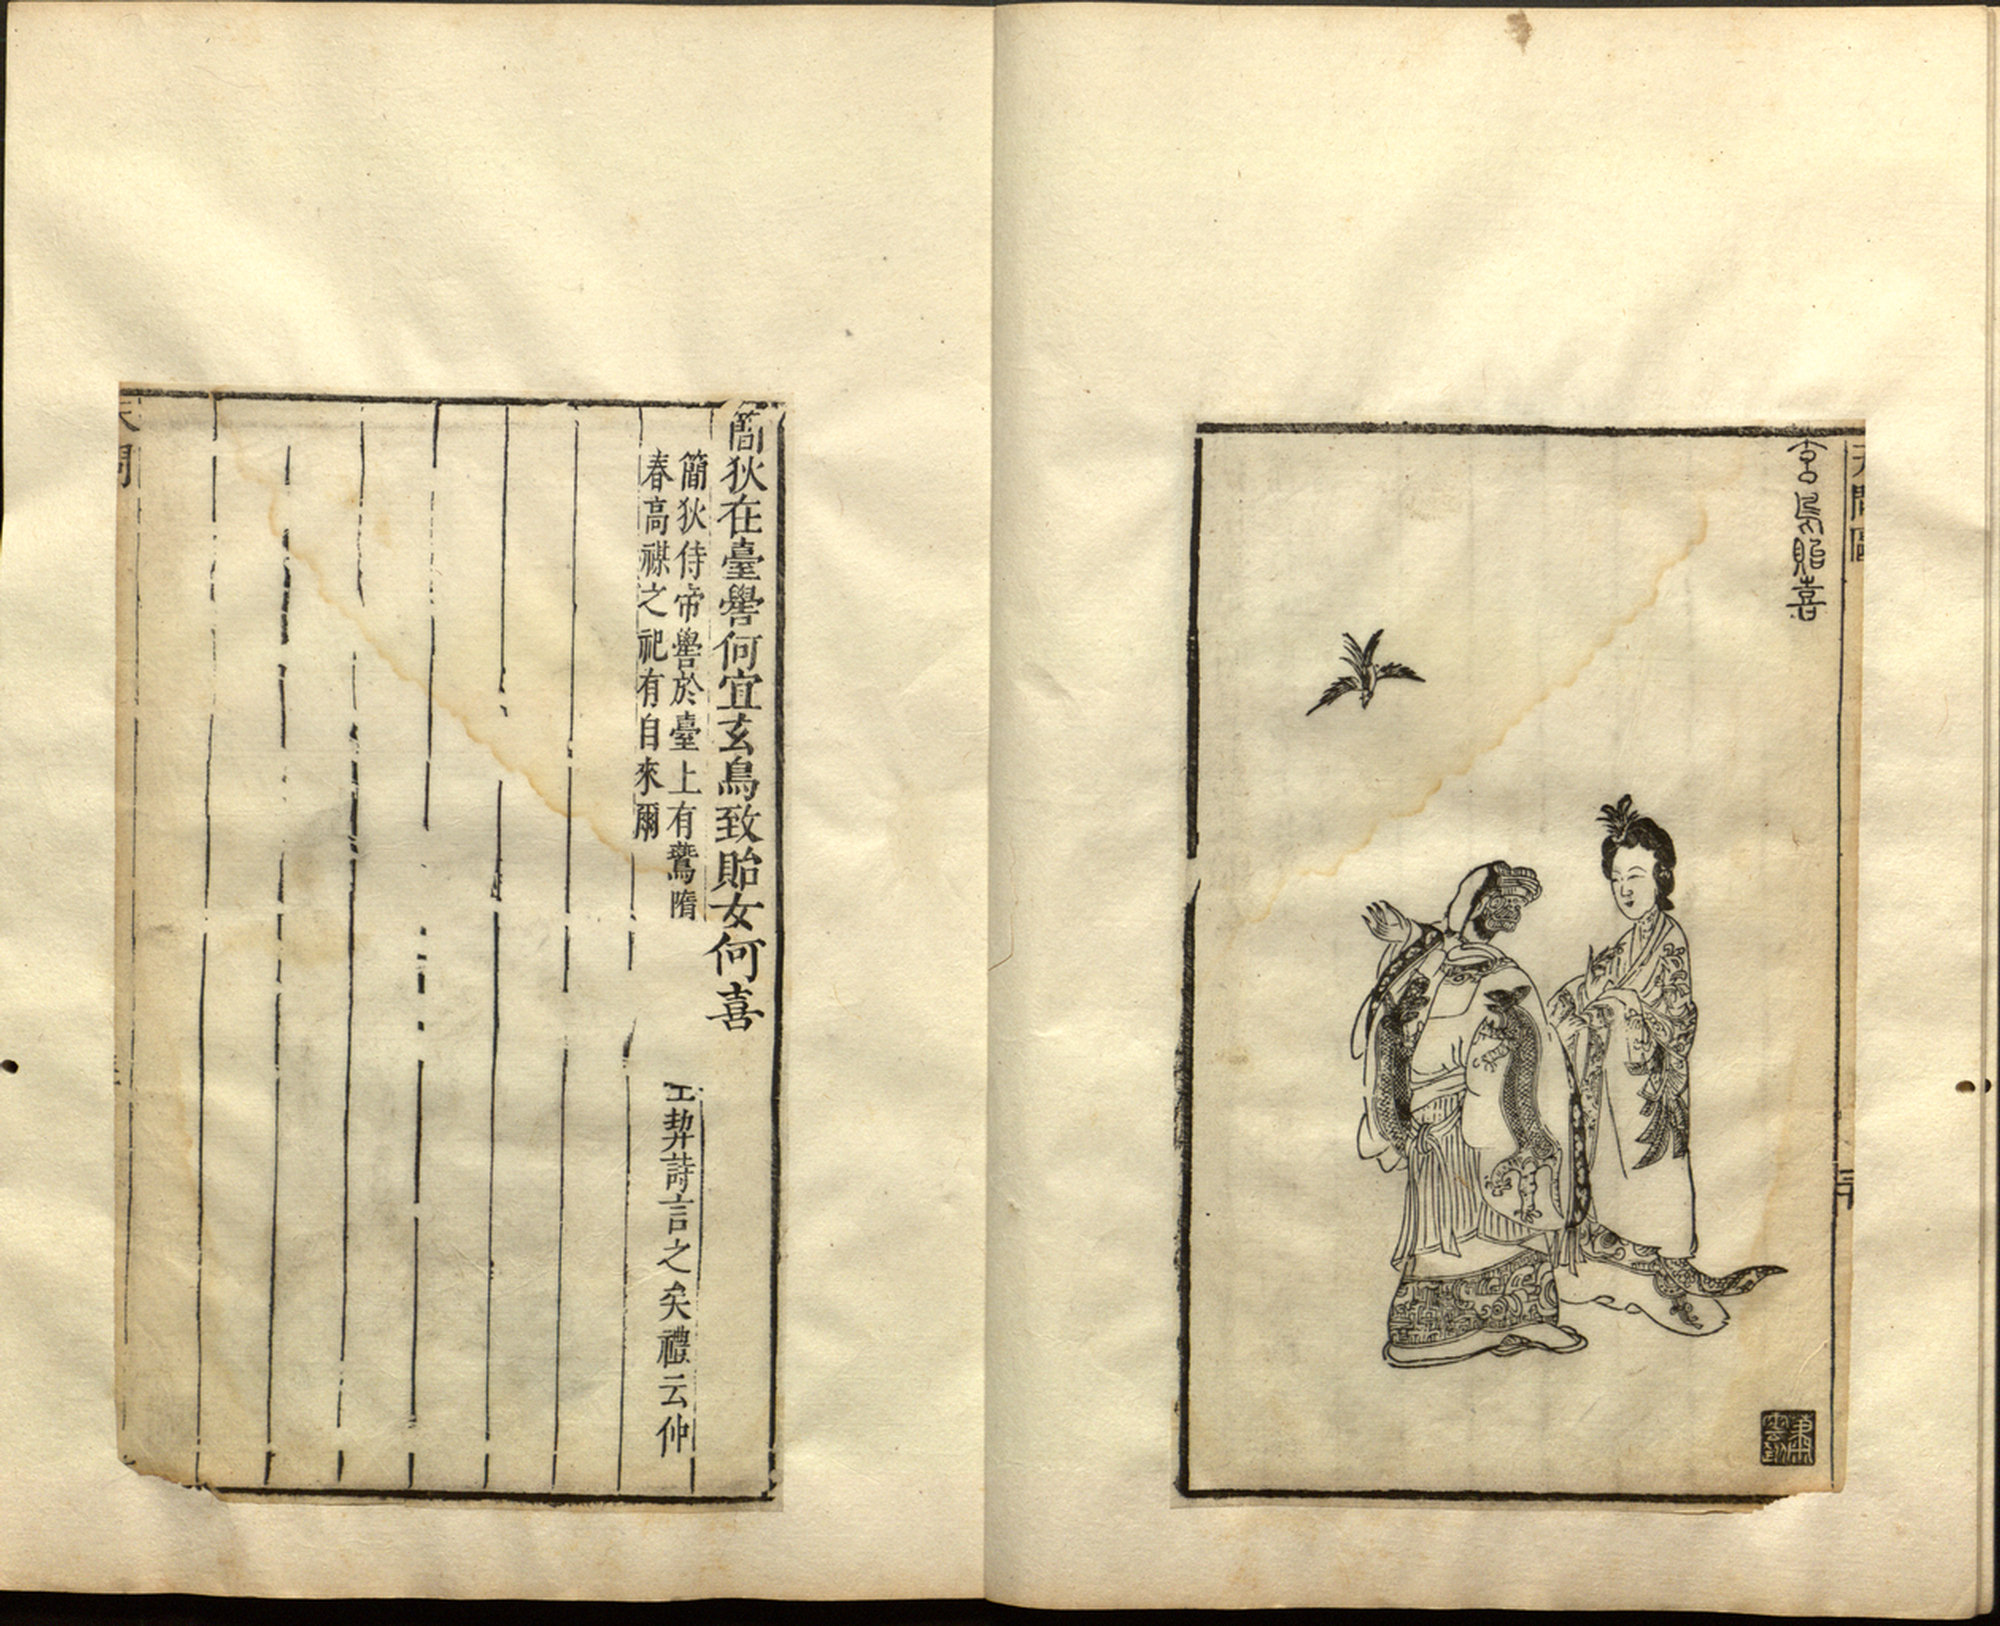 天問圖
玄鳥貽喜
簡狄在臺嚳何宜玄鳥致貽女何喜
簡狄侍帝嚳於臺上有鷰隋契詩言之矣禮云仲
春高禖之祀有自來爾
天問